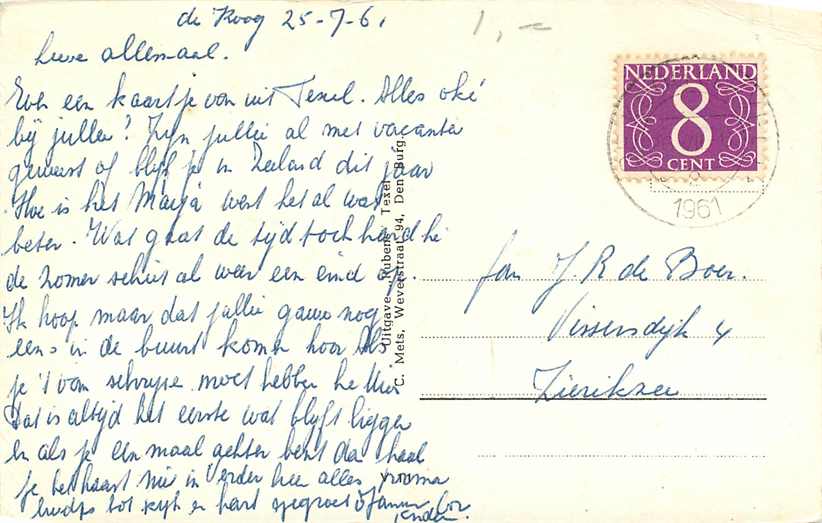 de Koog 25-7-61
1,-
Lieve allemaal.
Even een kaartje van uit Texel. Alles oké
bij jullie? Zijn jullie al met vacantie
geweest of blijf je in Zeeland dit jaar
Hoe is het Marja west het al wat
beter. Wat gaat de tijd toch hard hè
de zomer schiet al weer een eind op.
Ik hoop maar dat jullie gauw nog
eens in de buurt komen hoor Als
je 't van schrijve moet hebben he
Dat is altijd het eerste wat blijft ligge
en als je een maal achter bent dan haal
je het haast nie in Verder hier alles
tot kijk en hart gegroet
NEDERLAND
8
CENT
1961
Uitgave "Rubens" Texel
C. Mets, Weverstraat 94, Den Burg.
Fam J. R de Boer.
Vissersdijk 4
Zierikzee